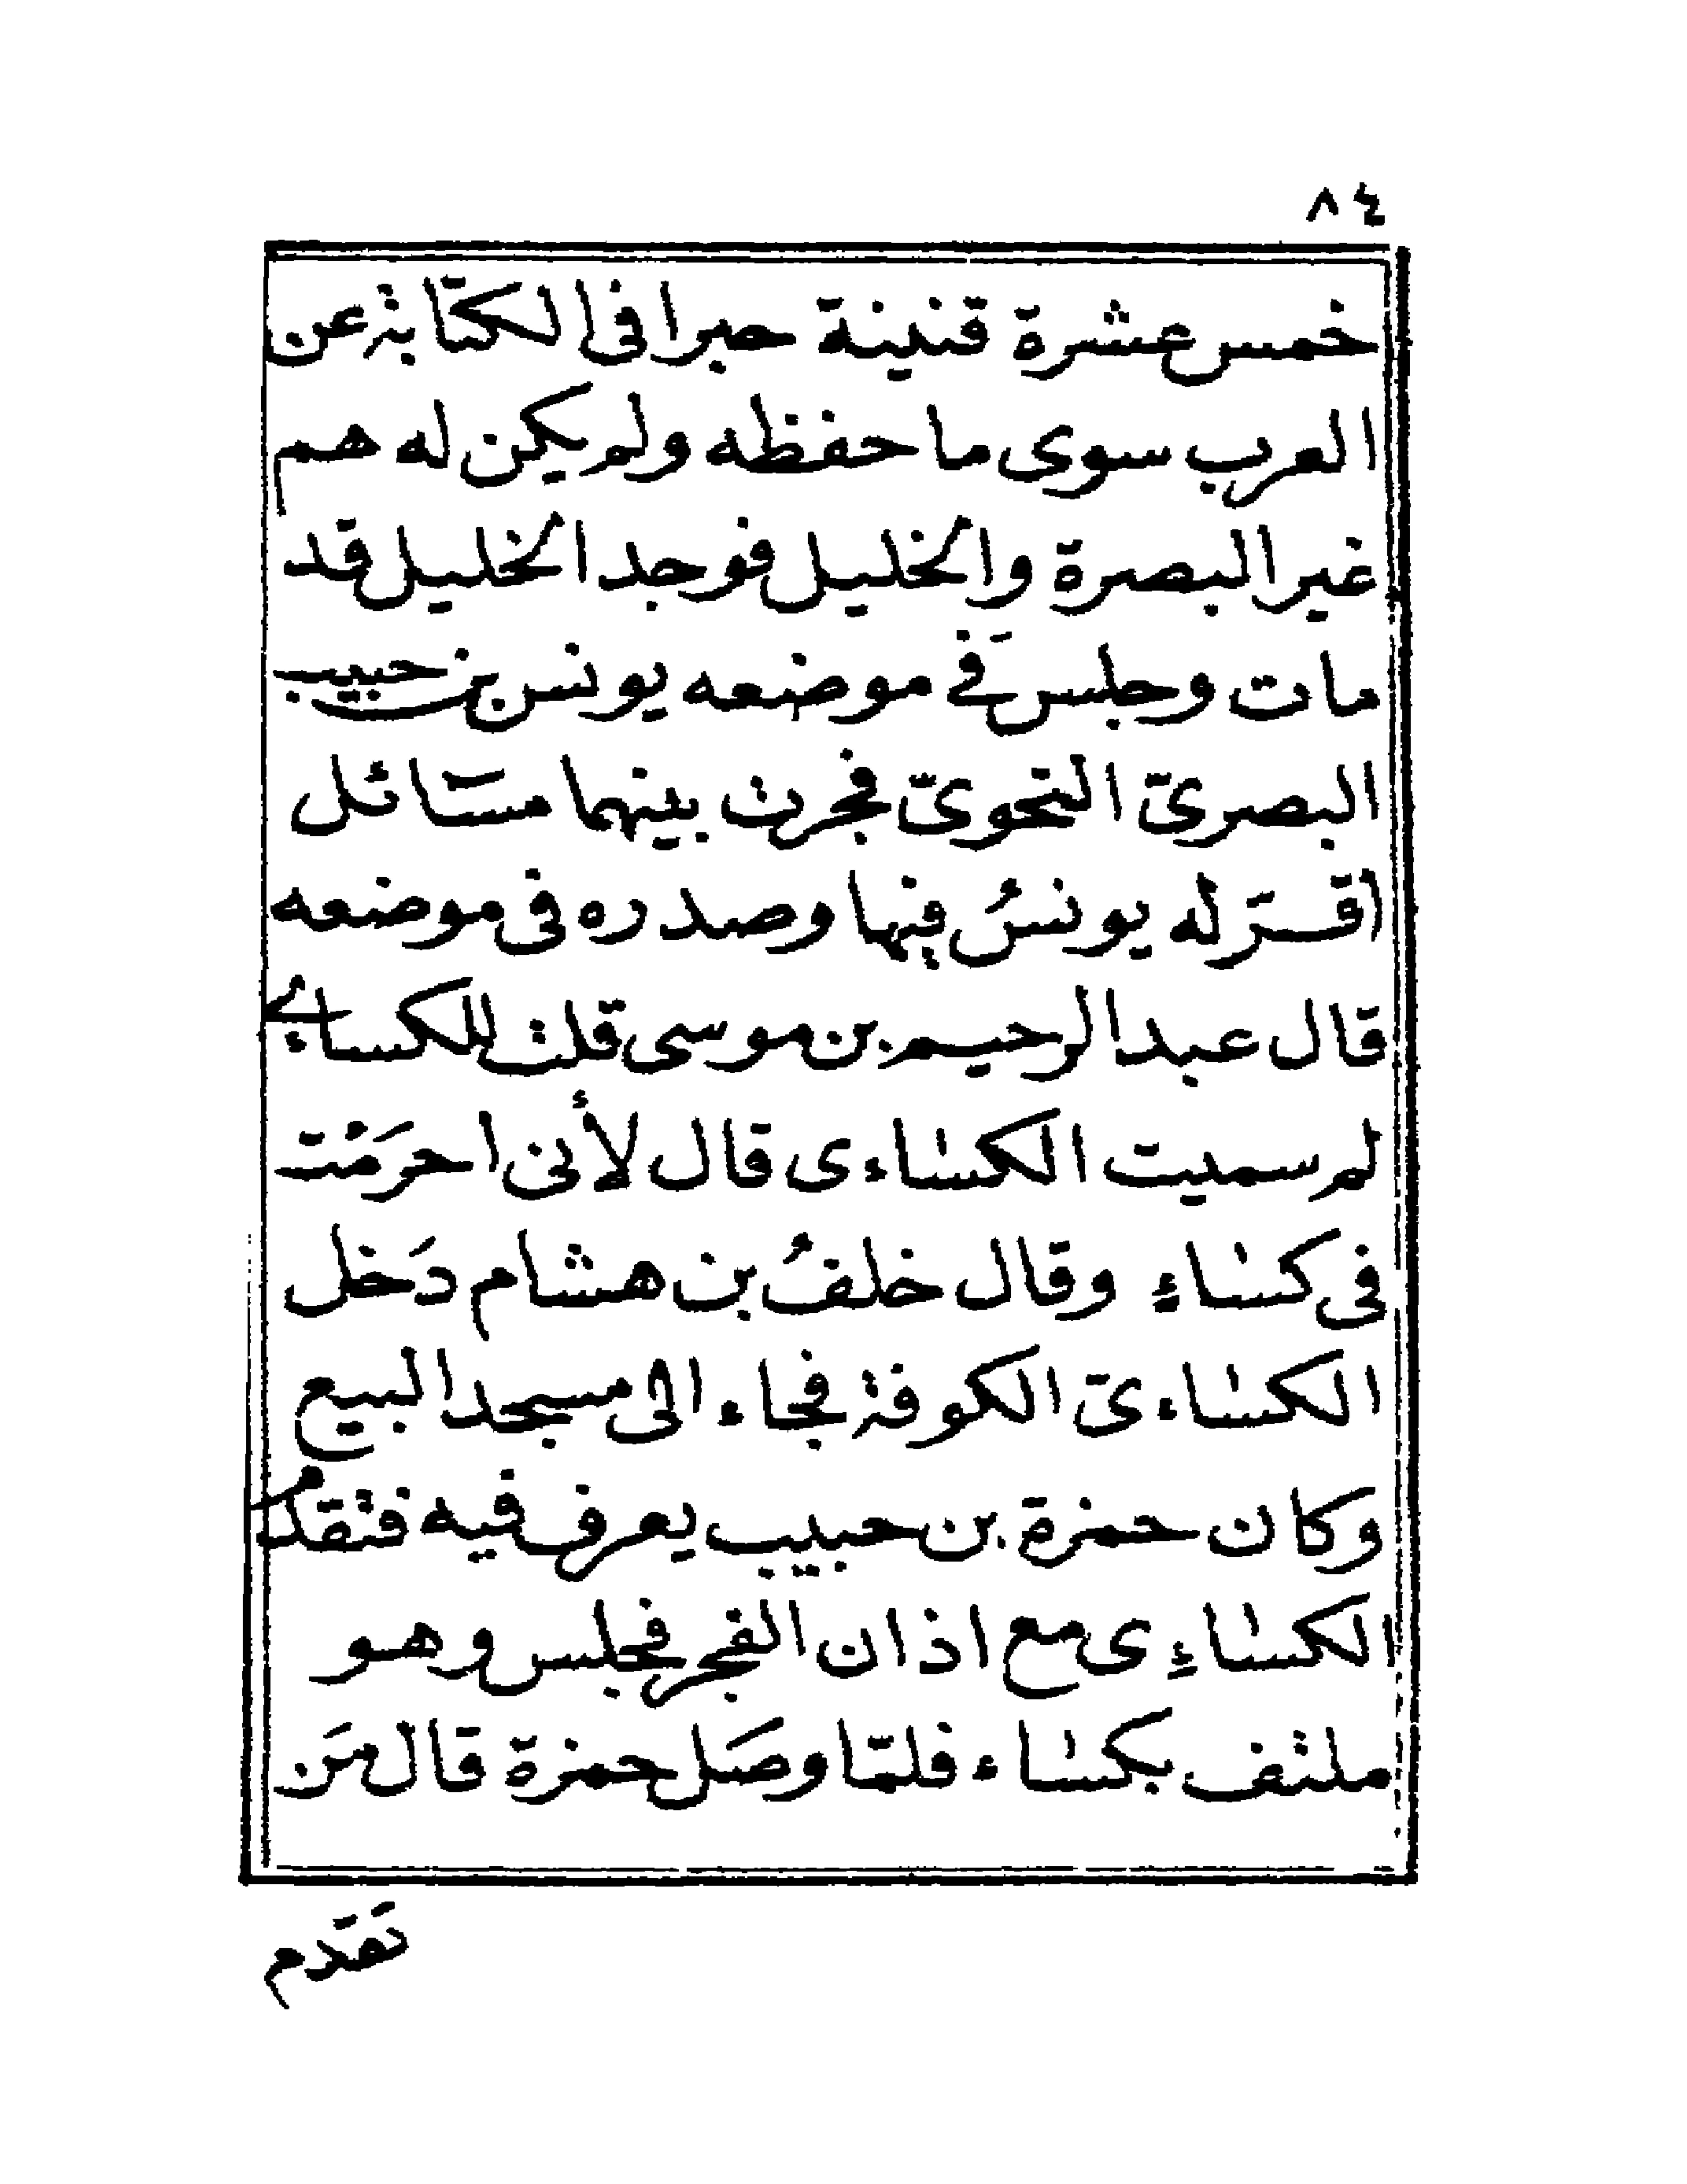 ٨٤
خمس عشرة قنينة حبرا فى الكتابة عن
العرب سوى ما حفظه ولم يكن له هم
غير البصرة والخليل فوجد الخليل قد
مات وجلس فَى موضعه يونس بن حبيب
البصرىّ النحوىّ فجرت بينهما مسَائل
اقرّ له يونسُ فيها وصدره فى موضعه
قال عبد الرحيم بن موسى قلت للكساءى
لم سميت الكساءى قال لأنى احرَمْت
فى كساءٍ وقال خلفُ بن هشام دَخل
الكساءىّ الكوفة فجاء الى مسجد البيع
وكان حمزة بن حبيب يعرف فيه فتقدم
الكساءِى مع اذان الفجر فجلس وهو
ملتف بكساء فلمّا وصَل حمزة قال مَن
تَقَدم